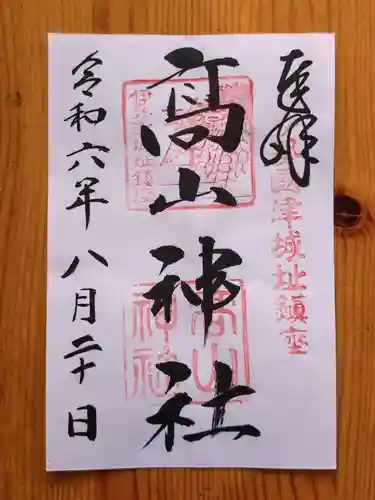 奉拝
國津城址鎮座
高山神社
高山
神社
令和六年八月二十日